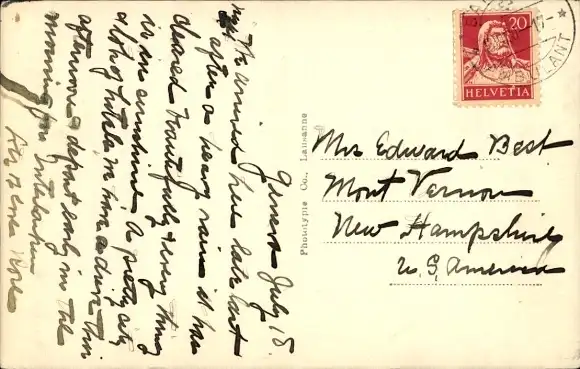 Geneva July 18.
We arrived here late last
night after a heavy rain it has
cleared beautifully & every thing
is in sunshine A pretty city
a lot of hotels, in time a drive this
afternoon depart early in the
morning for Interlaken
Phototypie Co., Lausanne
20
HELVETIA
AMBULANT
Mrs Edward Best
Mont Vernon
New Hampshire
U. S. America